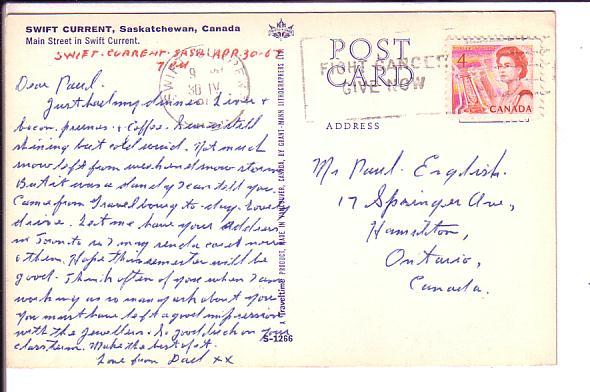 SWIFT CURRENT, Saskatchewan, Canada
Main Street in Swift Current.
SWIFT-CURRENT-SASK. APR. 30-67
7 PM
Dear Paul.
Just had my dinner. Liver &
bacon, prunes & Coffee. Sun still
shining but cold wind. Not much
snow left from weekend snow storm
But it was a dandy I can tell you.
Came from to-day. Lovely
drive. Let me have your address
in Toronto so I may send a card now
& then. Hope this semester will be
good. I think often of you when I am
working as so many ask about you
You must have left a good impression
with the jewellers. So good luck on your
class term. Make the best of it.
Love from Dad xx
A Traveltime PRODUCT, MADE IN VANCOUVER, CANADA, BY GRANT-MANN LITHOGRAPHERS LTD.
S-1266
POST
CARD
ADDRESS
FIGHT CANCER
GIVE NOW
9
30 IV
4
CANADA
Mr Paul English.
17 Springer Ave,
Hamilton,
Ontario,
Canada.